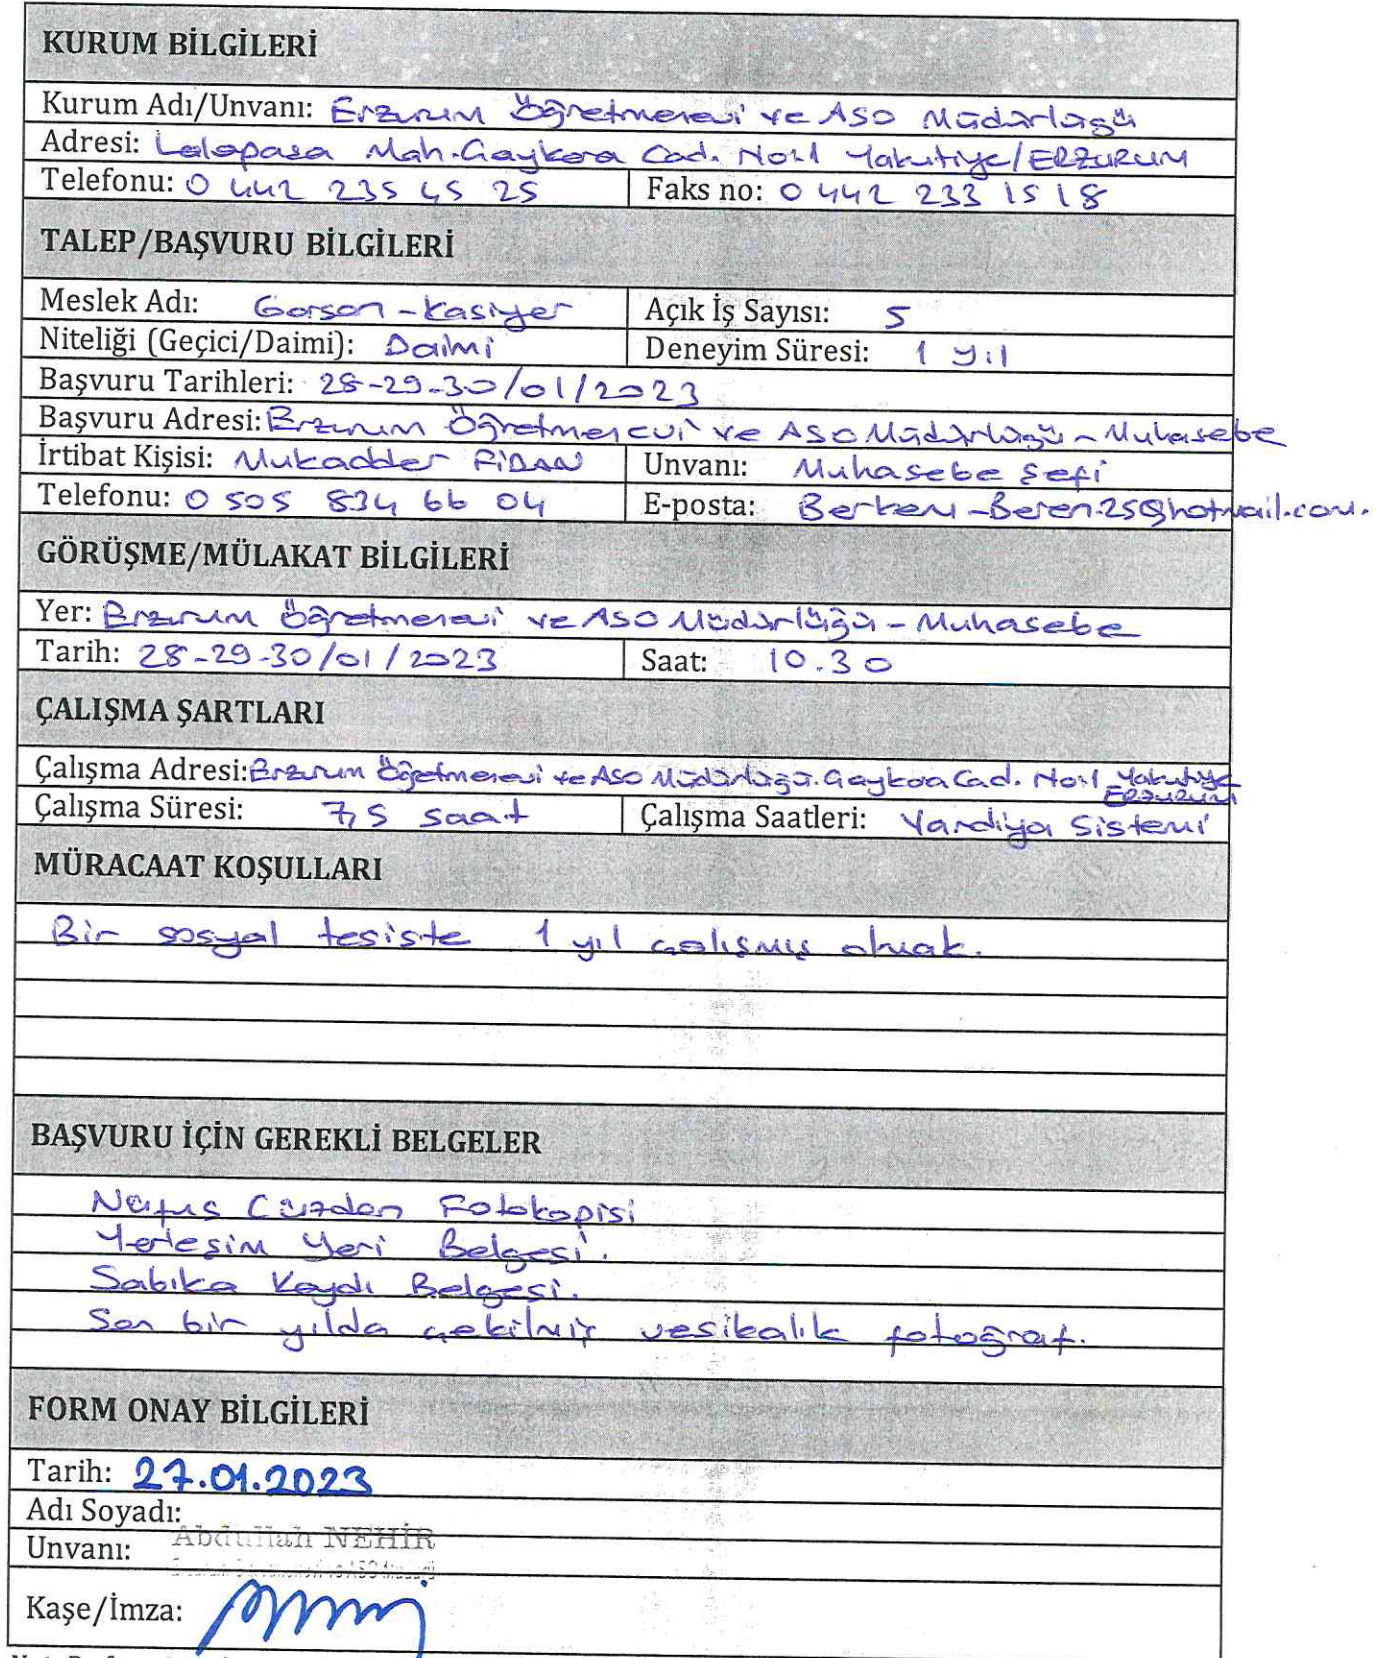 KURUM BİLGİLERİ
Kurum Adı/Unvanı: Erzurum Öğretmenevi ve ASO Müdürlüğü
Adresi: Lalapaşa Mah. Çaykara Cad. No:1 Yakutiye/ERZURUM
Telefonu: 0 442 235 45 25 Faks no: 0 442 233 15 18
TALEP/BAŞVURU BİLGİLERİ
Meslek Adı: Garson-Kasiyer Açık İş Sayısı: 5
Niteliği (Geçici/Daimi): Daimi Deneyim Süresi: 1 yıl
Başvuru Tarihleri: 28-29-30/01/2023
Başvuru Adresi: Erzurum Öğretmenevi ve ASO Müdürlüğü - Muhasebe
İrtibat Kişisi: Mukadder FİDAN Unvanı: Muhasebe Şefi
Telefonu: 0 505 834 66 04 E-posta: Berkem-Beren.25@hotmail.com.
GÖRÜŞME/MÜLAKAT BİLGİLERİ
Yer: Erzurum Öğretmenevi ve ASO Müdürlüğü - Muhasebe
Tarih: 28-29-30/01/2023 Saat: 10.30
ÇALIŞMA ŞARTLARI
Çalışma Adresi: Erzurum Öğretmenevi ve ASO Müdürlüğü. Çaykara Cad. No:1 Yakutiye
ERZURUM
Çalışma Süresi: 7,5 saat Çalışma Saatleri: Vardiya Sistemi
MÜRACAAT KOŞULLARI
Bir sosyal tesiste 1 yıl çalışmış olmak.
BAŞVURU İÇİN GEREKLİ BELGELER
Nüfus Cüzdan Fotokopisi
Yerleşim Yeri Belgesi.
Sabıka Kaydı Belgesi.
Son bir yılda çekilmiş vesikalık fotoğraf.
FORM ONAY BİLGİLERİ
Tarih: 27.01.2023
Adı Soyadı:
Abdullah NEHİR
Unvanı:
Kaşe/İmza: